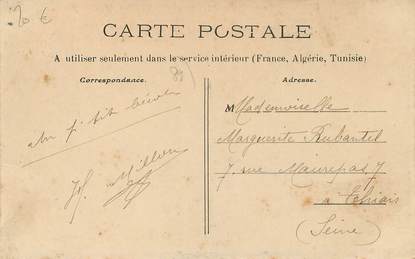 20 €
CARTE POSTALE
A utiliser seulement dans le service intérieur (France, Algérie, Tunisie)
Correspondance.
Adresse.
M Mademoiselle
Marguerite Rubantel
7. rue Maurepas 7
à Thiais
(Seine)